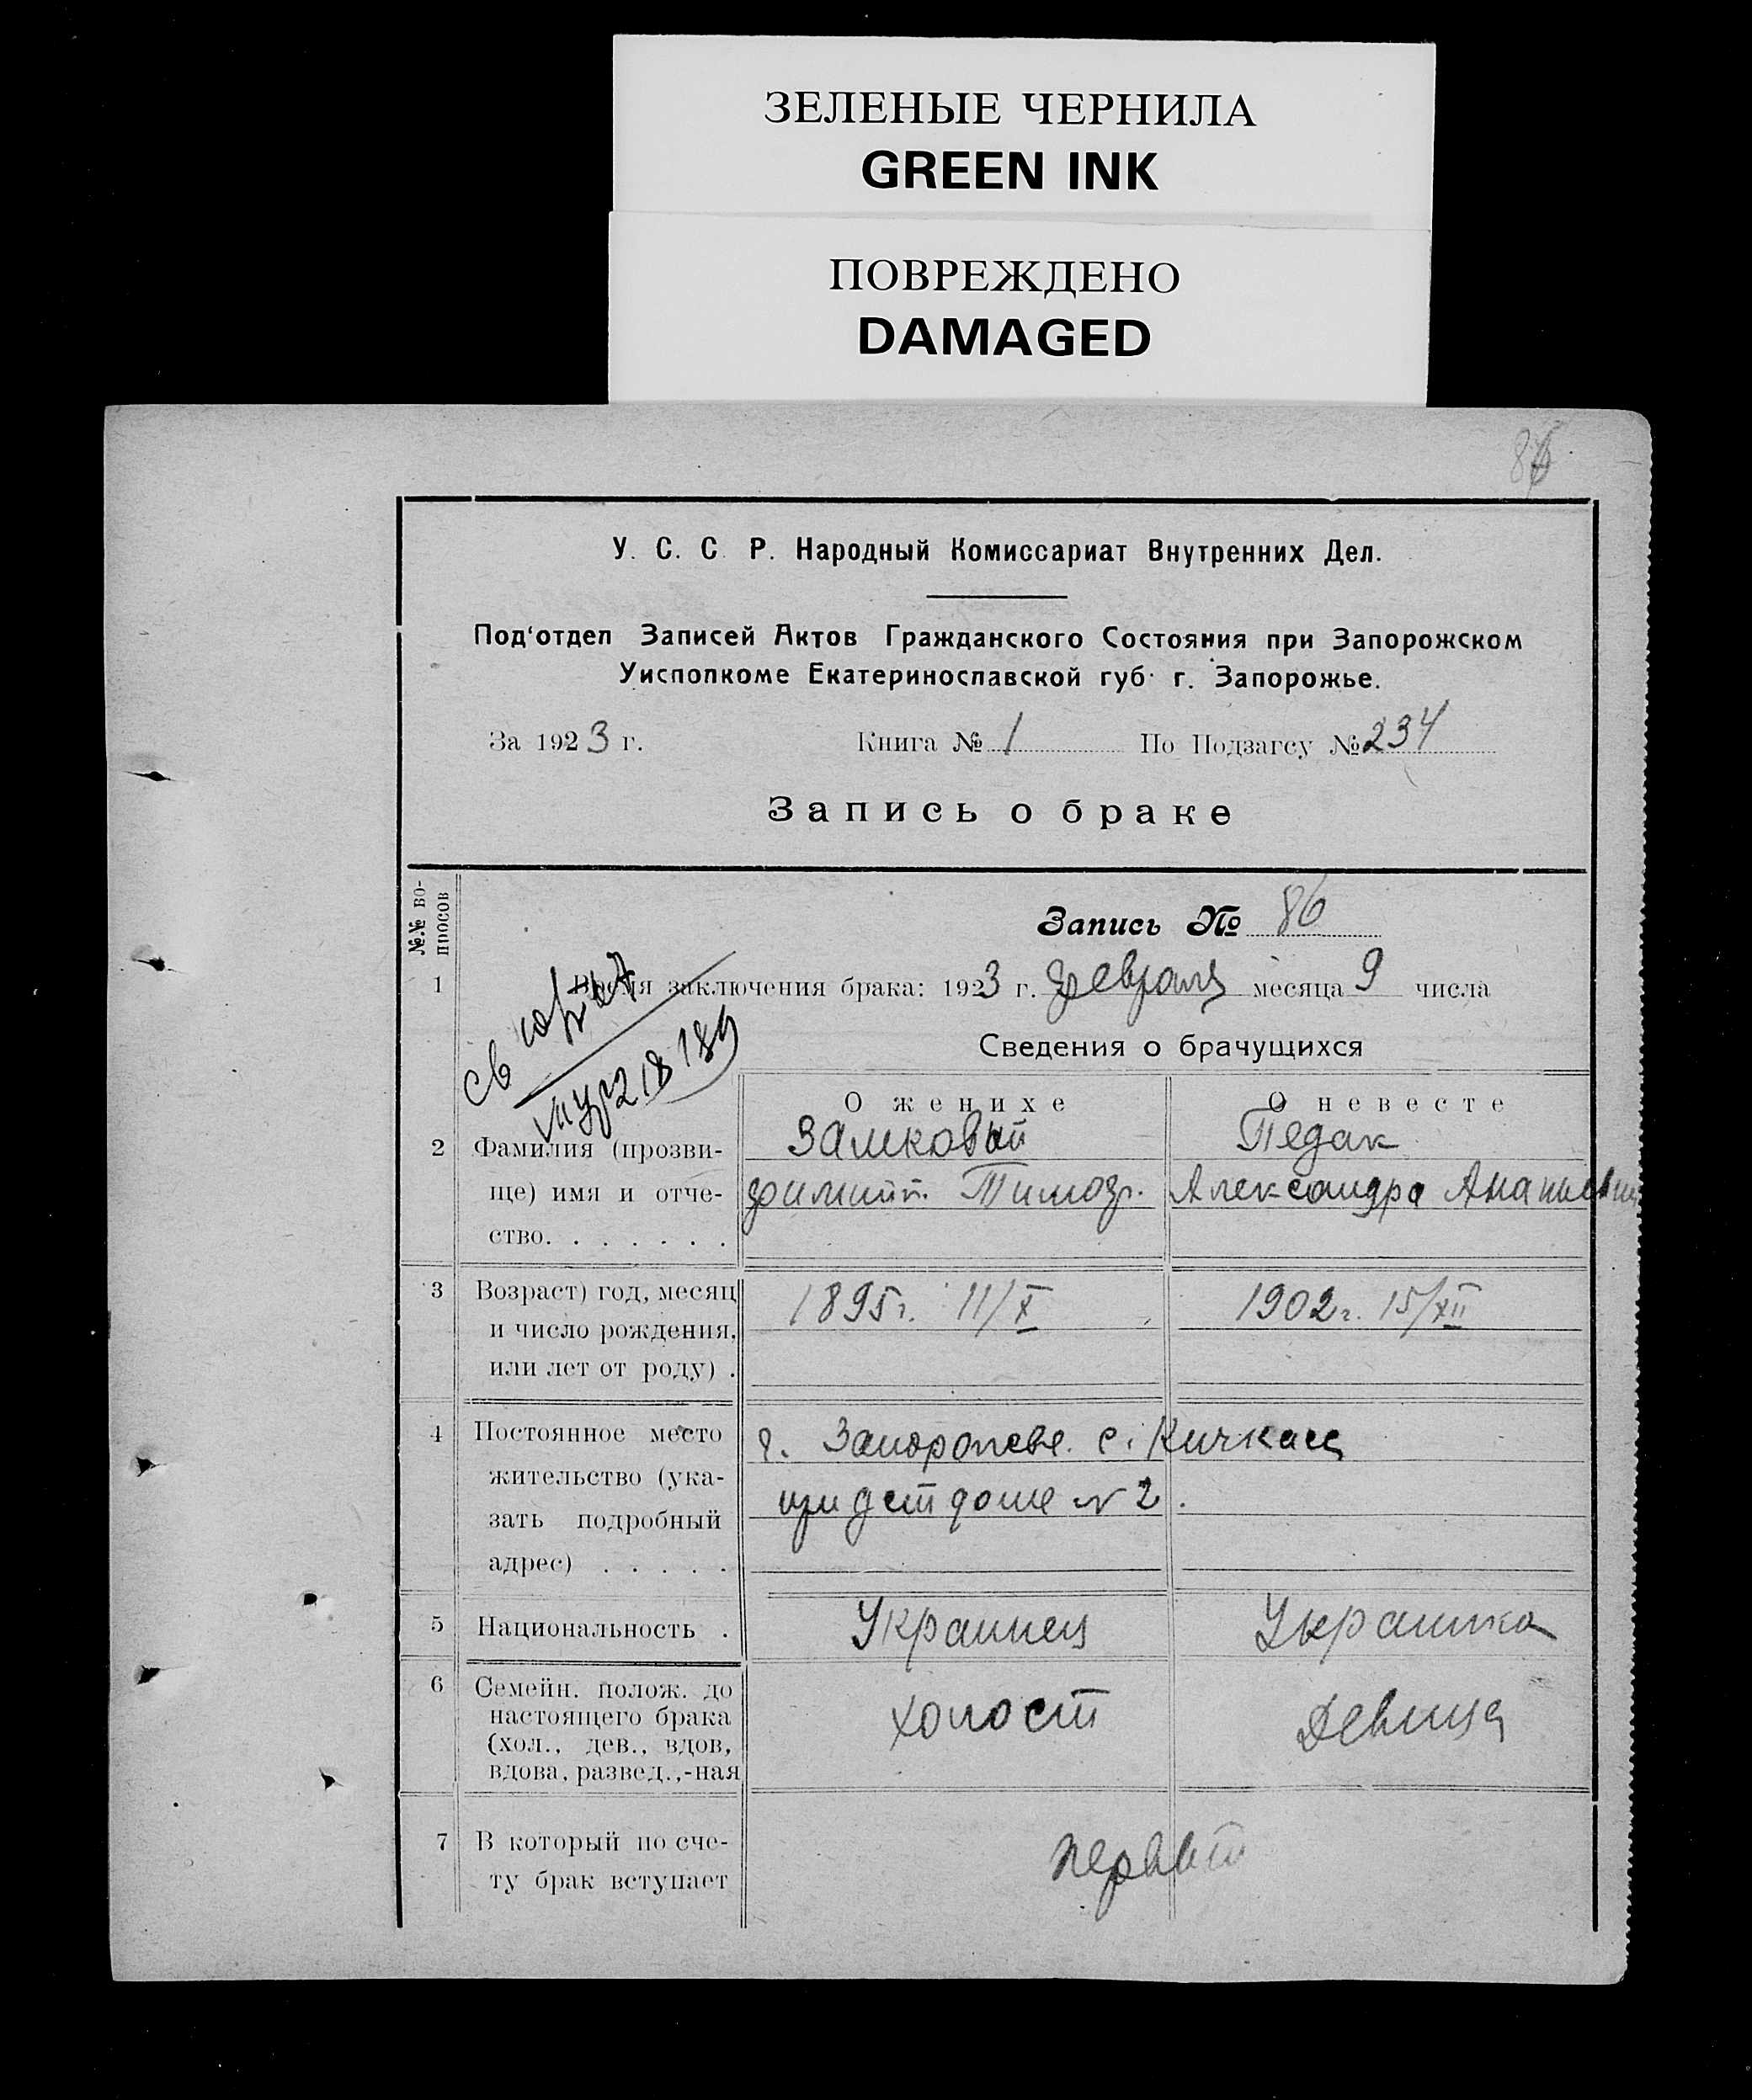 ЗЕЛЕНЫЕ ЧЕРНИЛА
GREEN INK
ПОВРЕЖДЕНО
DAMAGED
86
У. С. С Р. Народный Комиссариат Внутренних Дел.
Под‘отдел Записей Актов Гражданского Состояния при Запорожском
Уисполкоме Екатеринославской губ. г. Запорожье.
За 1923 г. Книга № 1 По Подзагсу № 234
Запись о браке
№.№ во-
просов
Запись № 86
1 Время заключения брака: 1923 г. февраля месяца 9 числа
Сведения о брачущихся
О женихе О невесте
2 Фамилия (прозви- Замковый Педак
ще) имя и отче- Тимоф. Александра
ство. . . . . . .
3 Возраст) год, месяц 1895г. 11/X 1902г. 15/XII
и число рождения,
или лет от роду) .
4 Постоянное место г. Запорожье с. Кичкас
жительство (ука- при дет доме № 2.
зать подробный
адрес) . . . . .
5 Национальность . Украинец Украинка
6 Семейн. полож. до
настоящего брака холост Девица
(хол., дев., вдов,
вдова, развед.,-ная
7 В который по сче- первый
ту брак вступает